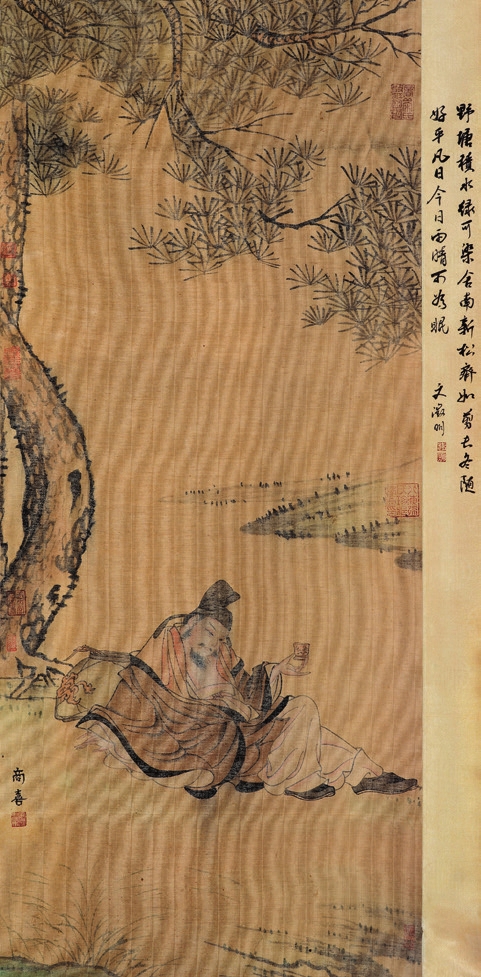 野塘積水綠可染舍南新松齊如剪去冬隨
好平凡日今日雨晴不為眠
文徵明
商喜